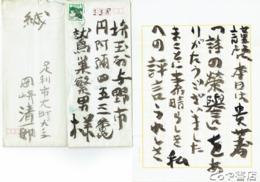 338
埼玉県与野市
円阿弥四五三
鷲巣繁男様
緘
足利市大町
岡崎清一郎
謹啓 本日は貴著
「詩の栄誉」をあ
りがたうございました
まことに素晴らしき
私への評語うれしく